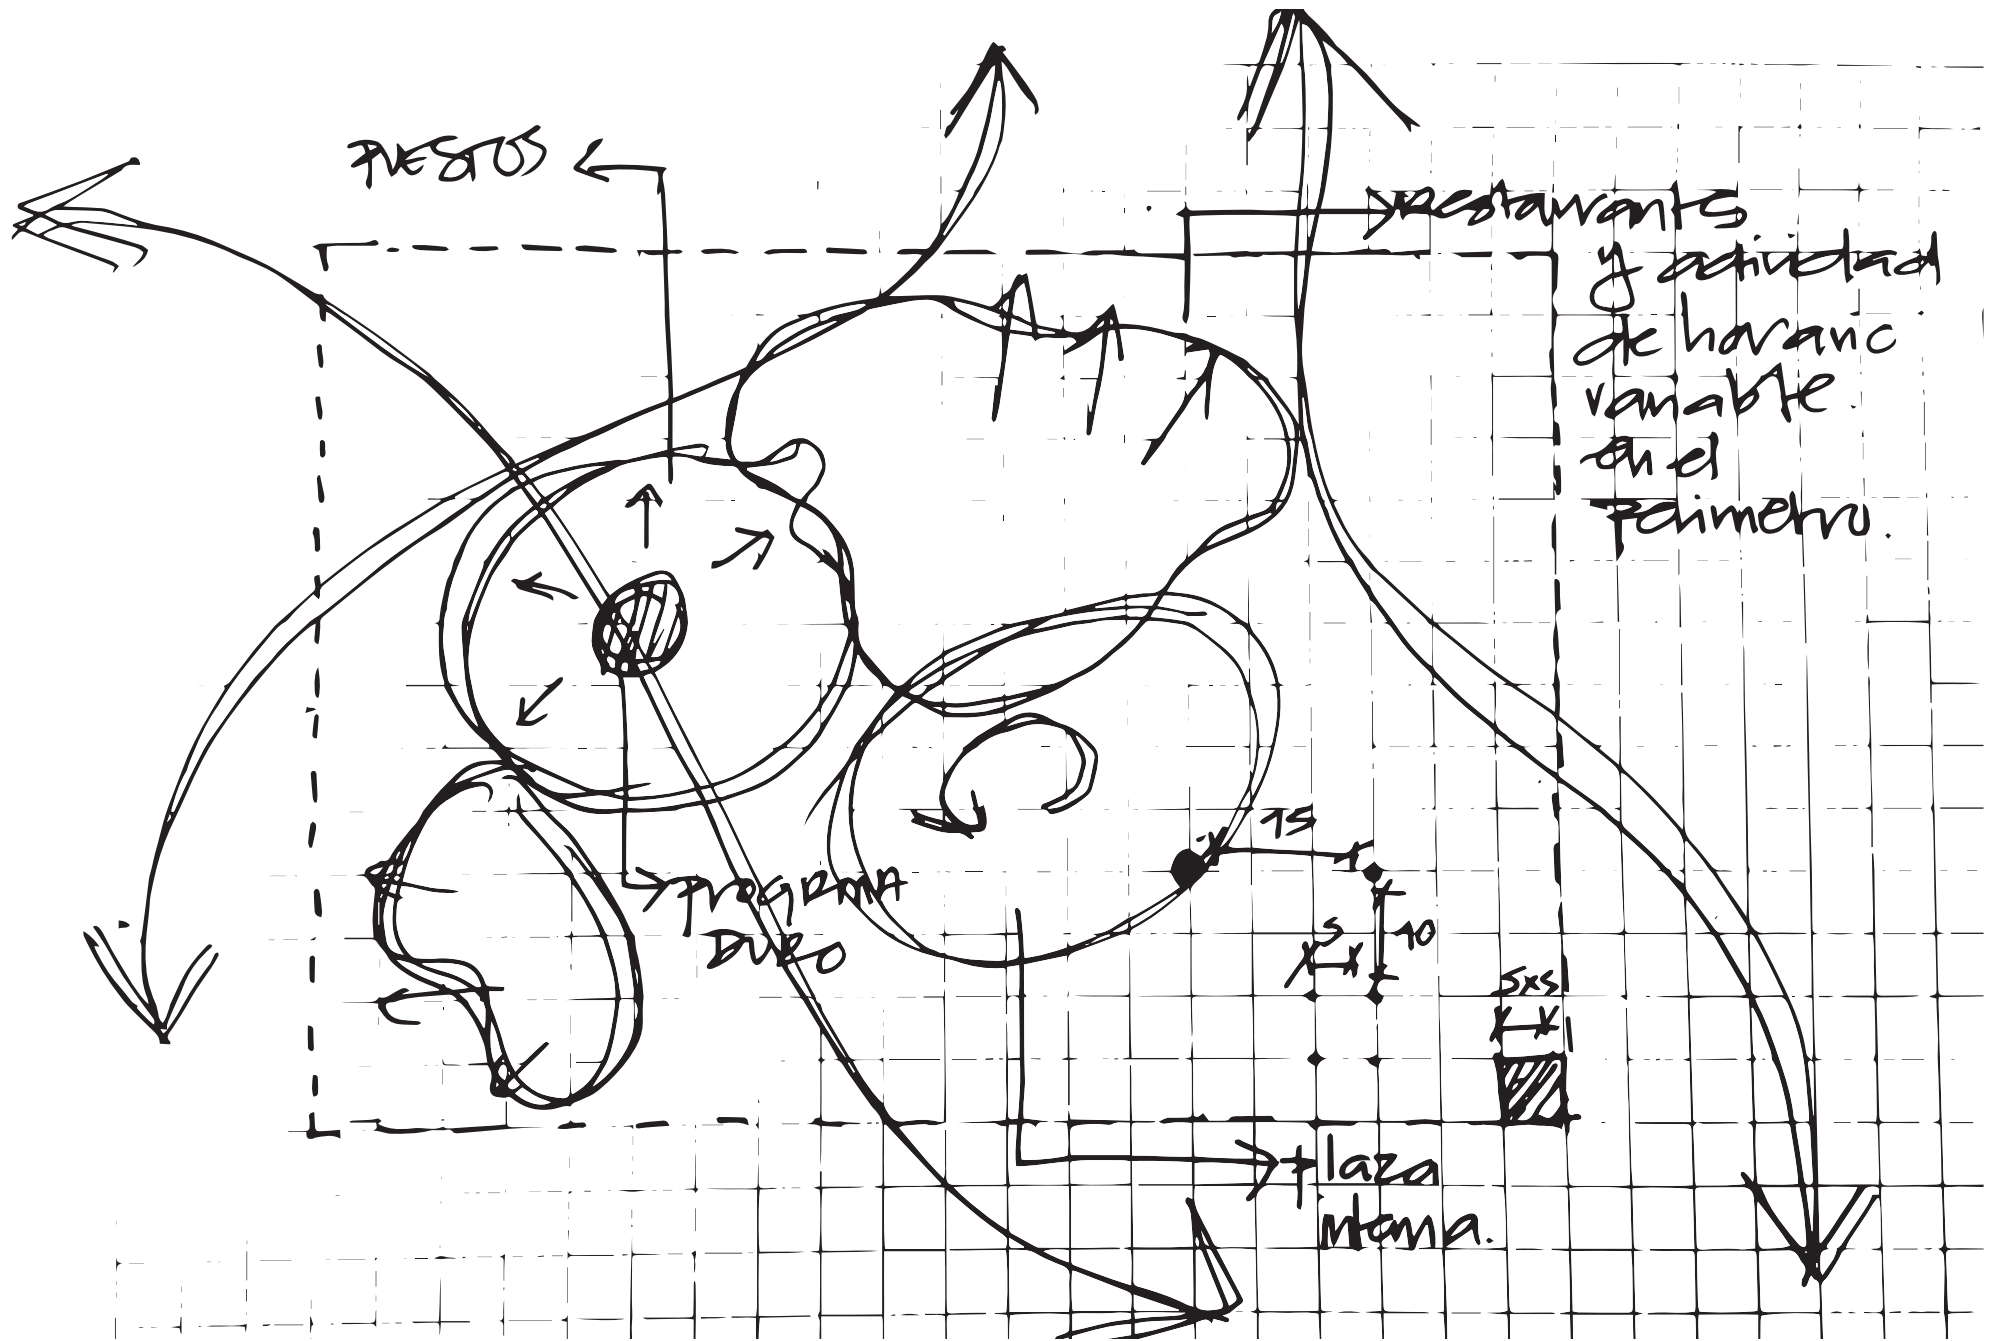 PUESTOS
Restaurantes
y actividad
de horario
variable
en el
perimetro.
PROGRAMA
DURO
15
5
10
5x5
plaza
interna.